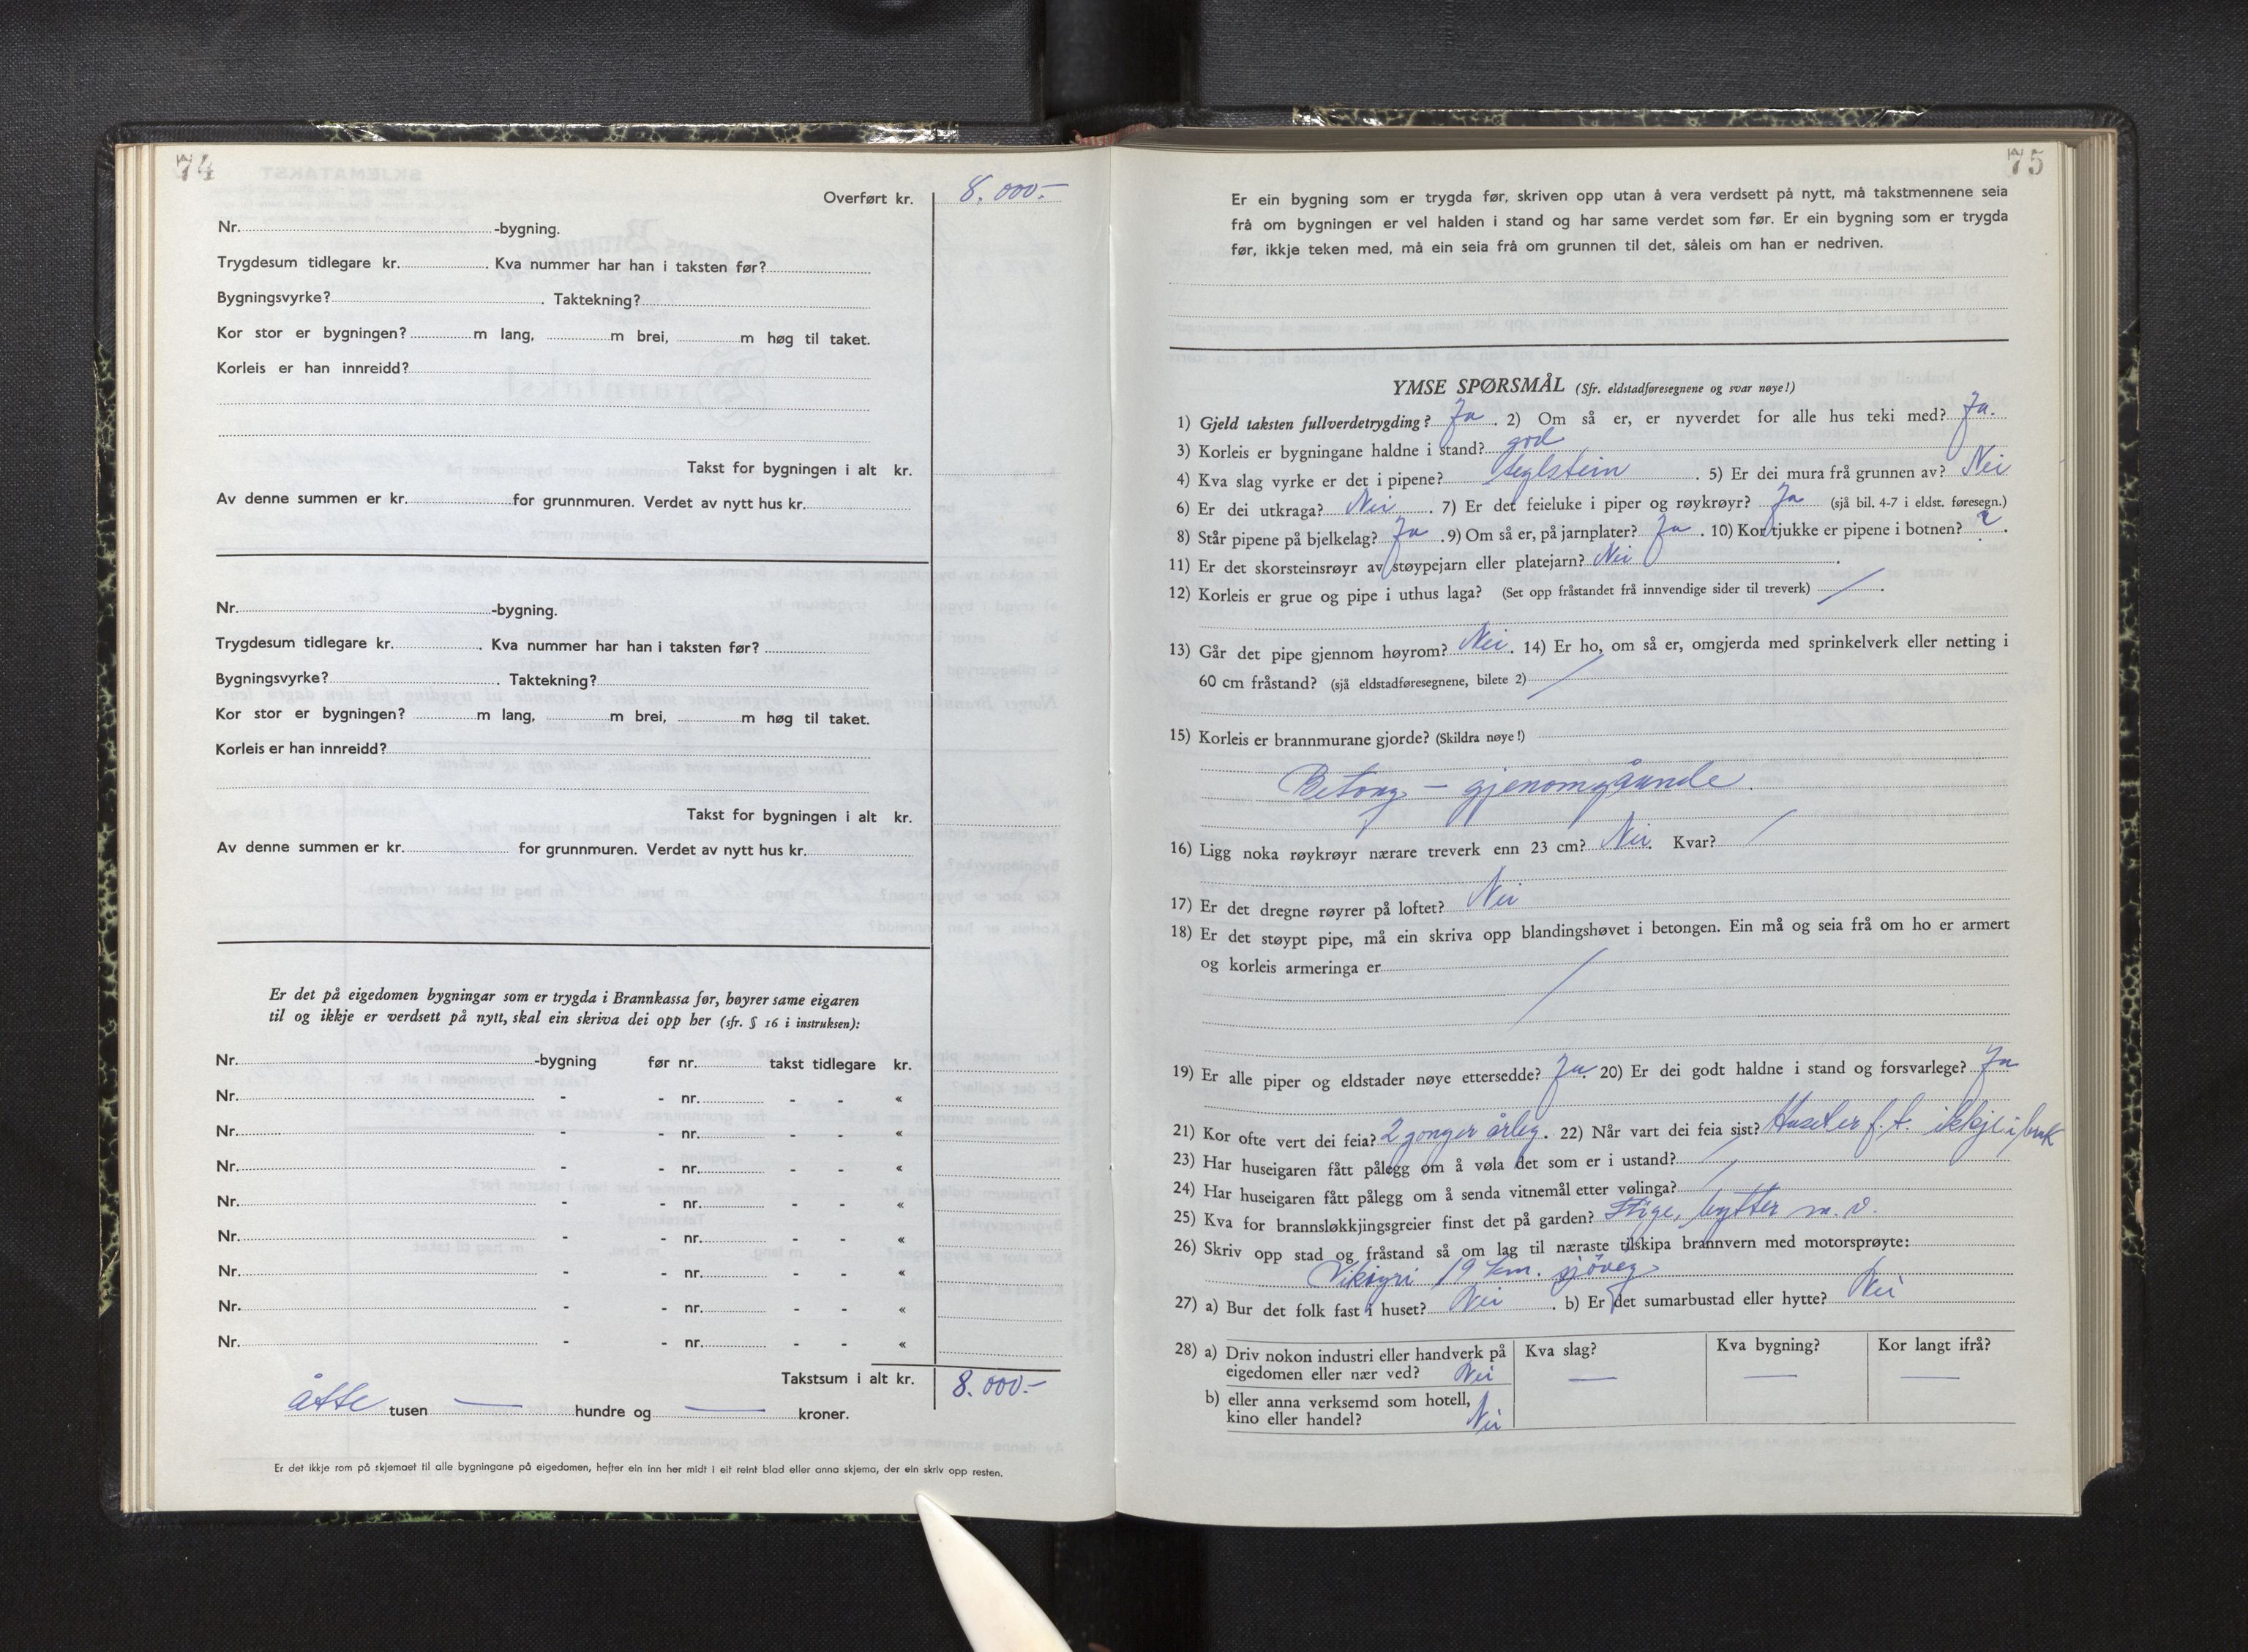 74
Overført kr. 8.000.-
Nr. -bygning.
Trygdesum tidlegare kr. . Kva nummer har han i taksten før?
Bygningsvyrke? . Taktekning?
Kor stor er bygningen? m lang, m brei, m høg til taket.
Korleis er han innreidd?
Takst for bygningen i alt kr.
Av denne summen er kr. for grunnmuren. Verdet av nytt hus kr.
Nr. -bygning.
Trygdesum tidlegare kr. . Kva nummer har han i taksten før?
Bygningsvyrke? . Taktekning?
Kor stor er bygningen? m lang, m brei, m høg til taket.
Korleis er han innreidd?
Takst for bygningen i alt kr.
Av denne summen er kr. for grunnmuren. Verdet av nytt hus kr.
Er det på eigedomen bygningar som er trygda i Brannkassa før, høyrer same eigaren
til og ikkje er verdsett på nytt, skal ein skriva dei opp her (sfr. § 16 i instruksen):
Nr. -bygning før nr. takst tidlegare kr.
Nr. - - nr. - - «
Nr. - - nr. - - «
Nr. - - nr. - - «
Nr. - - nr. - - «
Nr. - - nr. - - «
Nr. - - nr. - - «
Nr. - - nr. - - «
Nr. - - nr. - - «
Takstsum i alt kr. 8.000.-
åtte tusen — hundre og — kroner.
Er det ikkje rom på skjemaet til alle bygningane på eigedomen, hefter ein inn her midt i eit reint blad eller anna skjema, der ein skriv opp resten.
75
Er ein bygning som er trygda før, skriven opp utan å vera verdsett på nytt, må takstmennene seia
frå om bygningen er vel halden i stand og har same verdet som før. Er ein bygning som er trygda
før, ikkje teken med, må ein seia frå om grunnen til det, såleis om han er nedriven.
YMSE SPØRSMÅL (Sfr. eldstadføresegnene og svar nøye!)
1) Gjeld taksten fullverdetrygding? Ja . 2) Om så er, er nyverdet for alle hus teki med? Ja.
3) Korleis er bygningane haldne i stand? god
4) Kva slag vyrke er det i pipene? teglstein . 5) Er dei mura frå grunnen av? Nei
6) Er dei utkraga? Nei . 7) Er det feieluke i piper og røykrøyr? Ja (sjå bil. 4-7 i eldst. føresegn.)
8) Står pipene på bjelkelag? Ja . 9) Om så er, på jarnplater? Ja . 10) Kor tjukke er pipene i botnen? ? .
11) Er det skorsteinsrøyr av støypejarn eller platejarn? Nei .
12) Korleis er grue og pipe i uthus laga? (Set opp fråstandet frå innvendige sider til treverk) / .
13) Går det pipe gjennom høyrom? Nei . 14) Er ho, om så er, omgjerda med sprinkelverk eller netting i
60 cm fråstand? (sjå eldstadføresegnene, bilete 2) /
15) Korleis er brannmurane gjorde? (Skildra nøye!)
Betong – gjenomgåande.
16) Ligg noka røykrøyr nærare treverk enn 23 cm? Nei. Kvar? /
17) Er det dregne røyrer på loftet? Nei
18) Er det støypt pipe, må ein skriva opp blandingshøvet i betongen. Ein må og seia frå om ho er armert
og korleis armeringa er /
19) Er alle piper og eldstader nøye ettersedde? Ja . 20) Er dei godt haldne i stand og forsvarlege? Ja
21) Kor ofte vert dei feia? 2 gonger årleg . 22) Når vart dei feia sist? Huset er f.t. ikkje i bruk
23) Har huseigaren fått pålegg om å vøla det som er i ustand? /
24) Har huseigaren fått pålegg om å senda vitnemål etter vølinga? /
25) Kva for brannsløkkjingsgreier finst det på garden? Stige, bytter m.v.
26) Skriv opp stad og fråstand så om lag til næraste tilskipa brannvern med motorsprøyte:
Vikøyri 19 km. sjöveg
27) a) Bur det folk fast i huset? Nei . b) Er det sumarbustad eller hytte? Nei
28) a) Driv nokon industri eller handverk på Kva slag? Kva bygning? Kor langt ifrå?
eigedomen eller nær ved? Nei — — —
b) eller anna verksemd som hotell,
kino eller handel? Nei